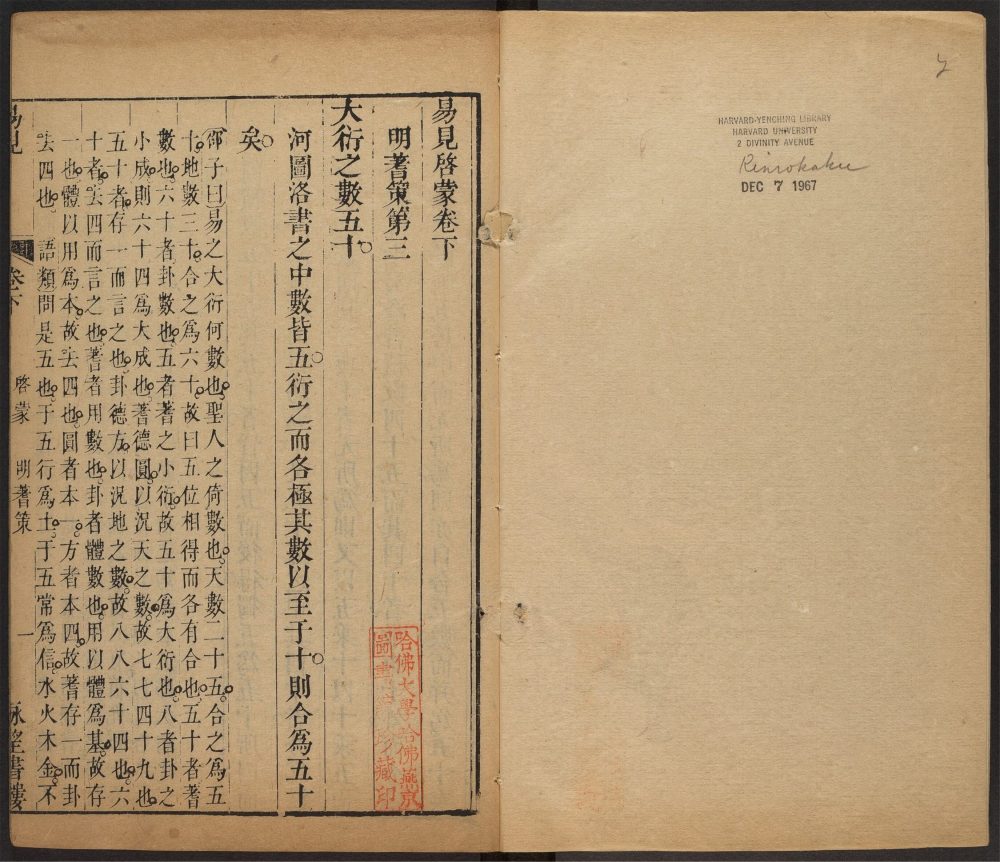 HARVARD-YENCHING LIBRARY
HARVARD UNIVERSITY
2 DIVINITY AVENUE
Rinrokaku
DEC 7 1967
易見啓蒙卷下
明蓍策第三
大衍之數五十
河圖洛書之中數皆五衍之而各極其數以至于十則合為五十
矣
邵子曰易之大衍何數也聖人之倚數也天數二十五合之為五
十地數三十合之為六十故曰五位相得而各有合也五十者蓍
數也六十者卦數也五者蓍之小衍故五十為大衍也八者卦之
小成則六十四為大成也蓍德圓以況天之數故七七四十九也
五十者存一而言之也卦德方以況地之數故八八六十四也六
十者去四而言之也蓍者用數也卦者體數也用以體為基故存
一也體以用為本故去四也圓者本一方者本四故蓍存一而卦
去四也 語類問是五也于五行為土于五常為信水火木金不
易見
卷下
啓蒙
明蓍策
一
詠堂書樓
哈佛大學哈佛燕京
圖書館珍藏印